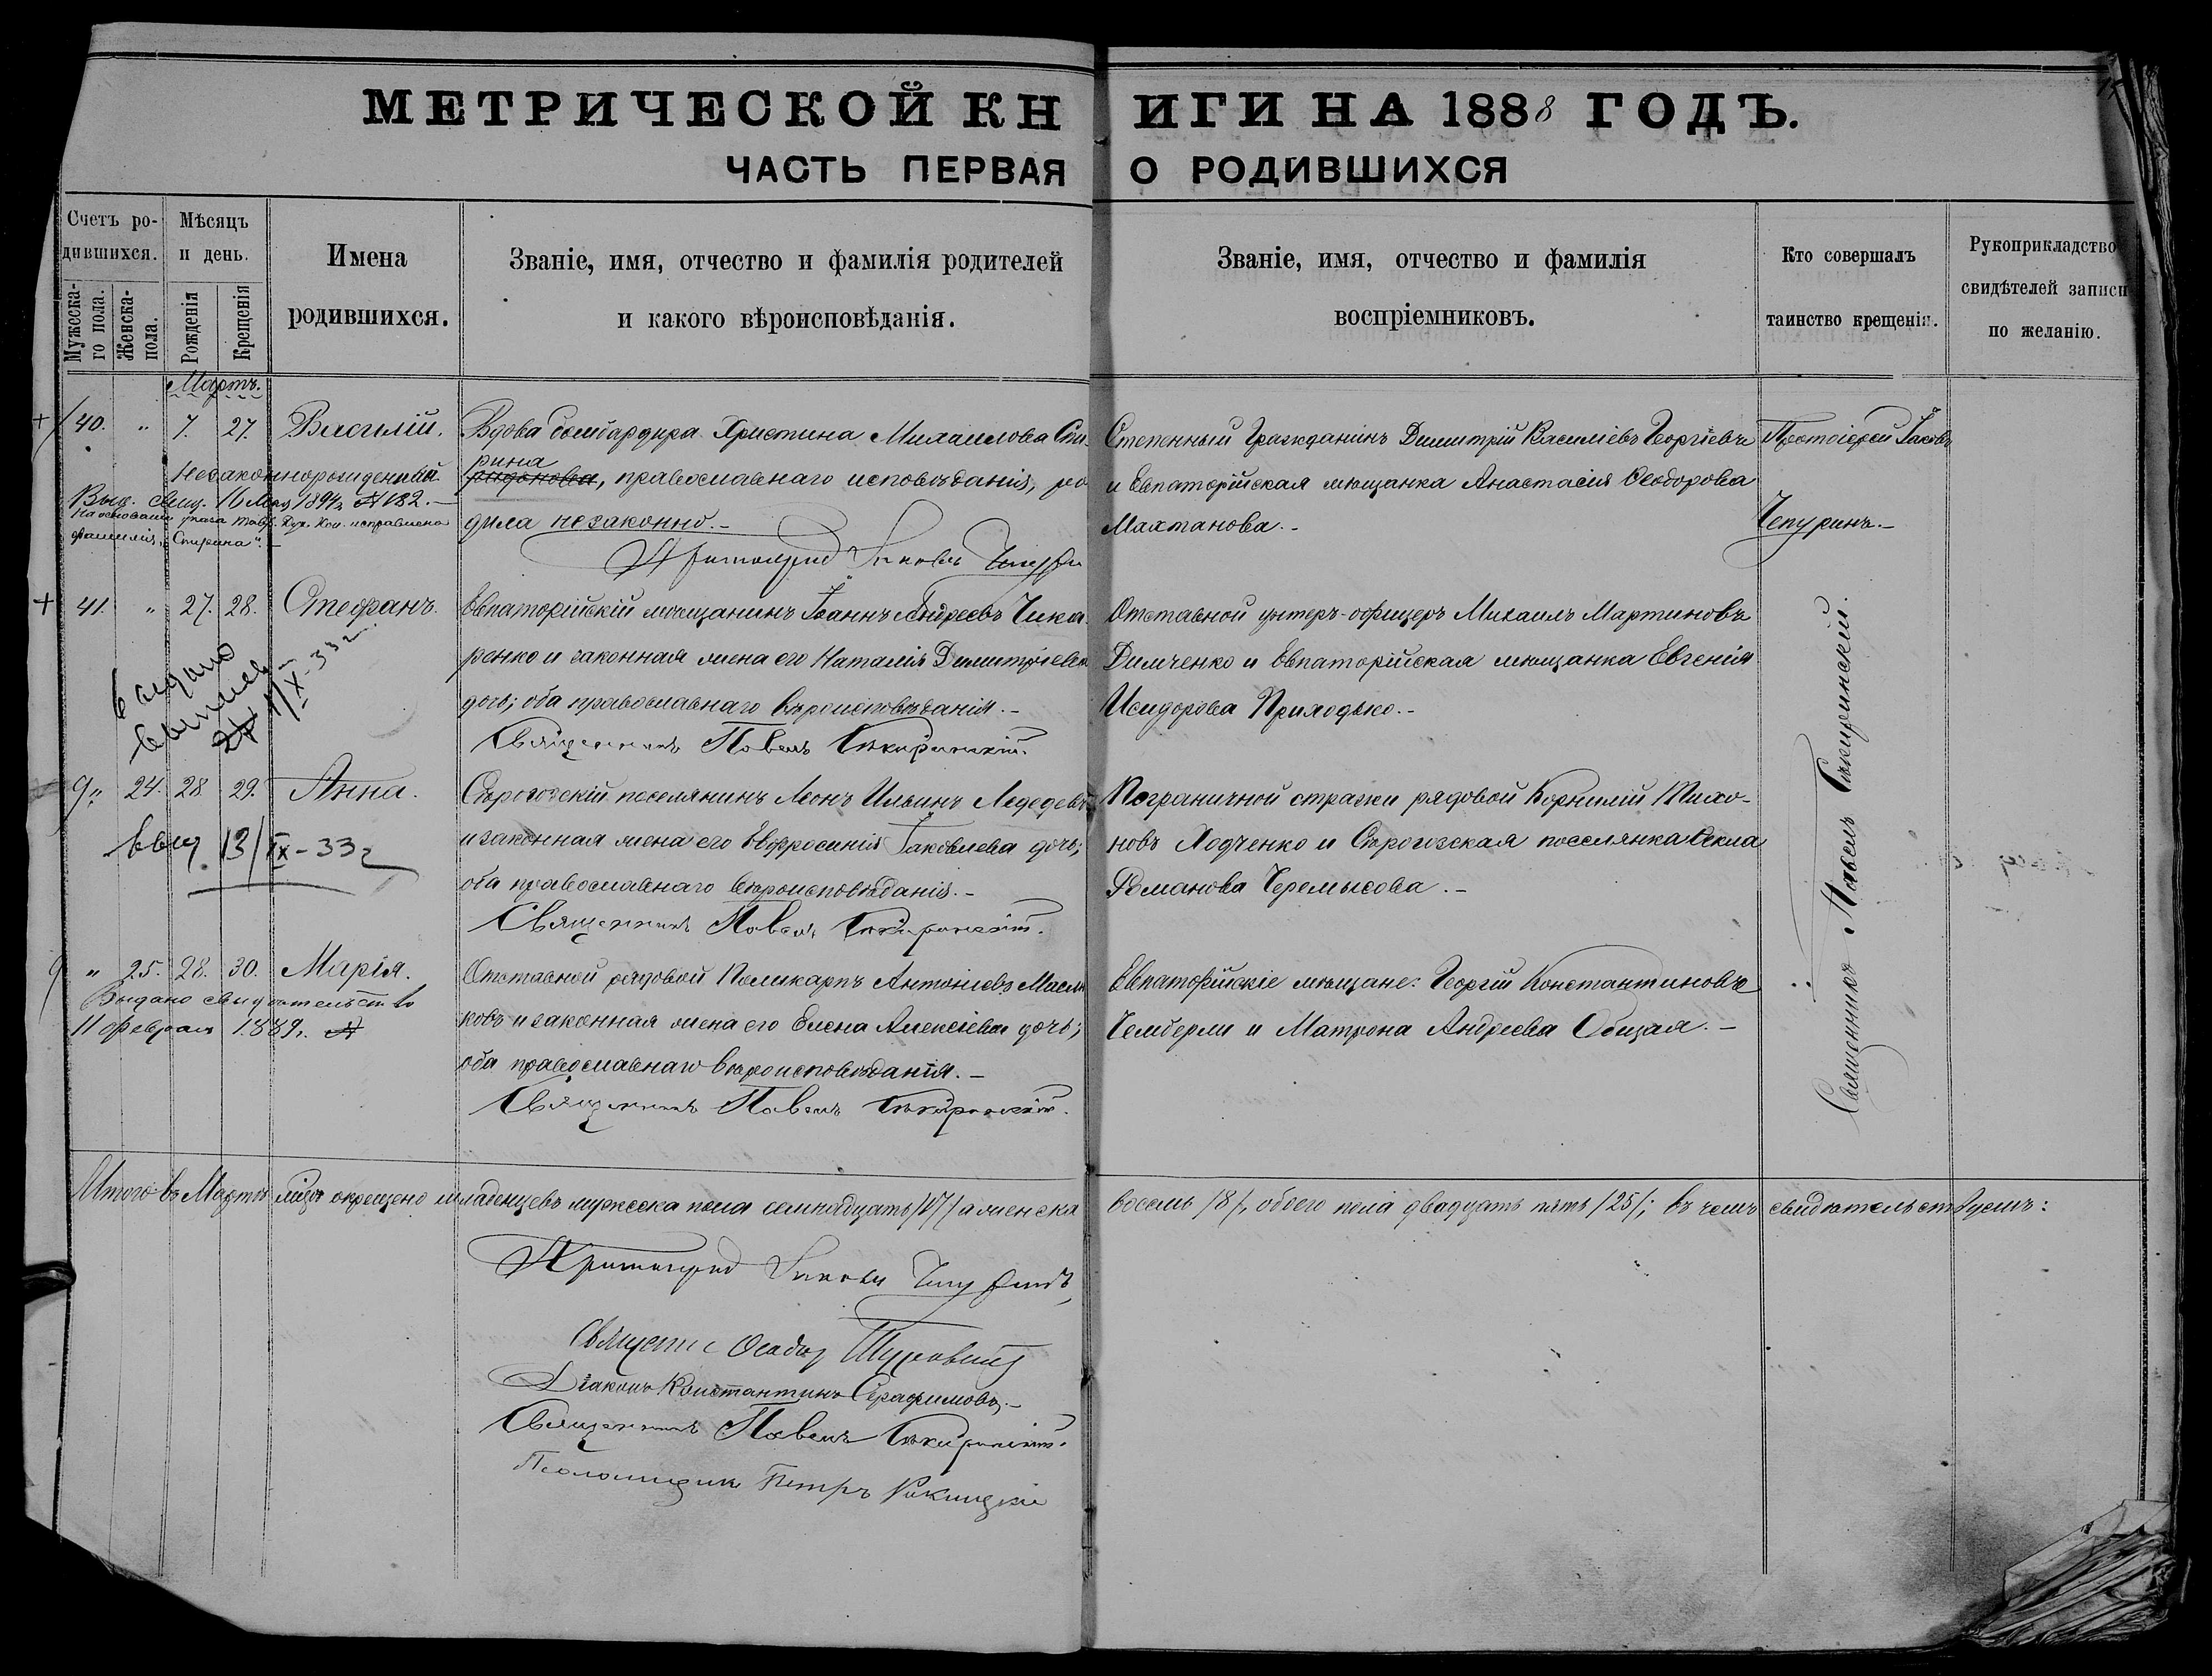 МЕТРИЧЕСКОЙ КНИГИ НА 1888 ГОДЪ.
ЧАСТЬ ПЕРВАЯ О РОДИВШИХСЯ
Счетъ ро-
дившихся.
Мужеска-
го пола.
Женска-
пола.
Мѣсяцъ
и день.
Рожденія
Крещенія
Имена
родившихся.
Званіе, имя, отчество и фамилія родителей
и какого вѣроисповѣданія.
Званіе, имя, отчество и фамилія
воспріемниковъ.
Кто совершалъ
таинство крещенія.
Рукоприкладство
свидѣтелей записи
по желанію.
Мартъ.
40. " 7. 27. Василій.
Незаконнорожденный
Выд. свид. 16 1894 № 182.
На основаніи указа Тавр. Дух. Кон. исправлена
фамилія "Спирина".
Вдова бомбардира Христина Михаилова Спи-
рина
, православнаго исповѣданія, ро
дила незаконно.-
Протоіерей Іаковъ Чепурин
Степенный Гражданинъ Димитрій Василіевъ Георгіевъ
и Евпаторійская мѣщанка Анастасія Ѳеодорова
Махтанова.-
Протоіерей Іаковъ
Чепуринъ.-
41. " 27. 28. Стефанъ.
выдано
IX-33г
Евпаторійскій мѣщанинъ Іоаннъ Андреевъ Чика-
ренко и законная жена его Наталія Димитріева
дочь; оба православнаго вѣроисповѣданія.-
Священникъ Павелъ
Отставной унтеръ-офицеръ Михаилъ Мартиновъ
Димченко и Евпаторійская мѣщанка Евгенія
Исидорова Приходько.-
" 24. 28 29. Анна.
выд. 13/IX-33г
Сѣрогозскій поселянинъ Леонъ Ильинъ Лебедевъ
и законная жена его Евфросинія Іаковлева дочь;
оба православнаго вѣроисповѣданія.-
Священникъ Павелъ
Пограничной стражи рядовой Корнилій Тихо-
новъ Лодченко и Сѣрогозская поселянка Ѳекла
Романова Черемысова.-
" 25. 28. 30. Марія.
Выдано свидѣтельство
11 февраля 1889г. №
Отставной рядовой Поликарпъ Антоніевъ Масли
ковъ и законная жена его Елена Алексіева дочь;
оба православнаго вѣроисповѣданія.-
Священникъ Павелъ
Евпаторійскіе мѣщане: Георгій Константиновъ
Чемберли и Матрона Андреева Общая.-
Священникъ Павелъ
Итого въ Мартѣ мѣсцѣ окрещено младенцевъ мужеска пола семнадцать /17/ а женска восемь /8/, обоего пола двадцать пять /25/; въ чемъ свидѣтельствуемъ:
Протоіерей Іаковъ Чепуринъ
Діаконъ Константинъ Серафимовъ.-
Священникъ Павелъ
Псаломщикъ Петръ Рокицкій